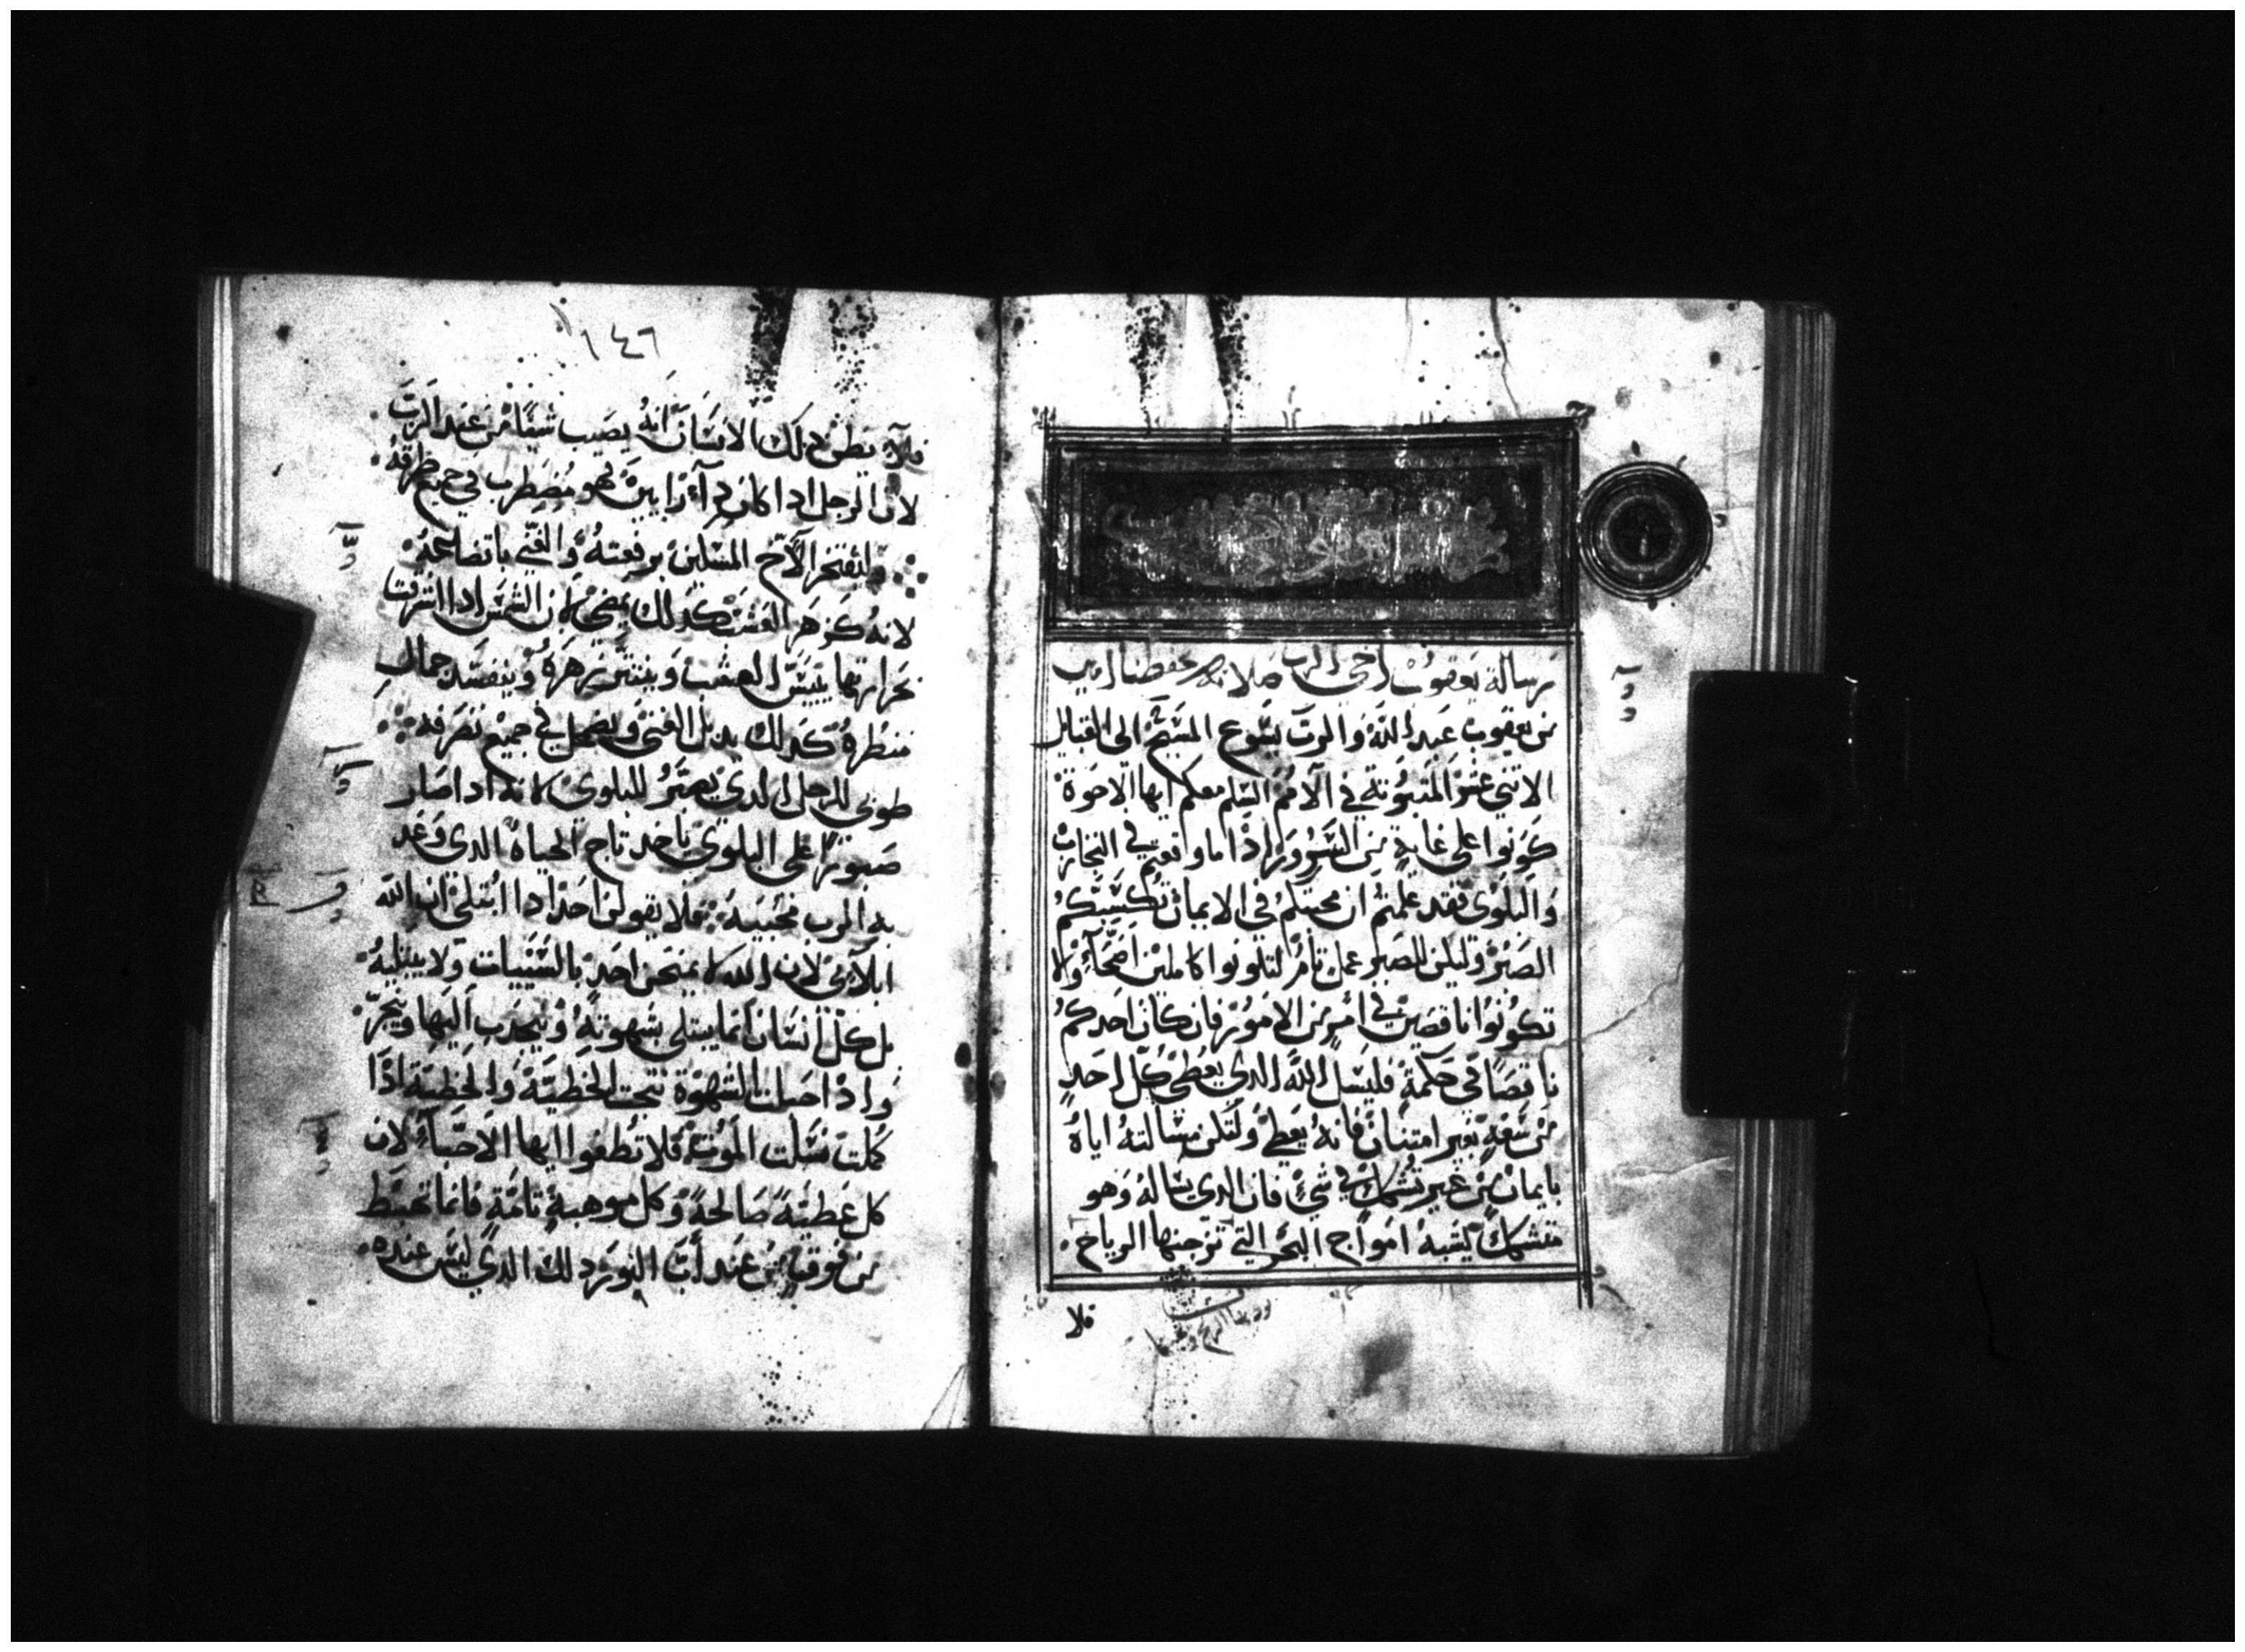 رسالة يعقوب اخي الرب صلاته تحفظنا امين
من يعقوب عبد الله والرب يسوع المسيح الى القبايل
الاثني عشر المبثوثة في الامم السلم معكم ايها الاخوة
كونوا على غاية من السرور اذا ما وقعتم في التجارب
والبلوى فقد علمتم ان محنتكم في الايمان تكسبكم
الصبر وليكن للصبر عمل تام لتكونوا كاملين اصحآء ولا
تكونوا ناقصين في امر من الامور فان كان احدكم
ناقصا في حكمة فليسل الله الدي يعطي كل احد
من سعة بغير امتنان فانه يعطى ولتكن مسالته اياه
بايمان من غير تشكك في شيء فان الدي يساله وهو
متشكك يشبه امواج البحر التي تزعجها الرياح
فلا
١٤٦
فلا يظن دلك الانسان انه يصيب شيئا من عند الرب
لان الرجل ادا كان دا رايين فهو مضطرب في جميع طرقه
ليفتخر الاخ المسكين برفعته والغني باتضاعه
لانه كزهر العشب كدلك يمضي لان الشمس ادا اشرقت
بحرارتها يتيبس العشب وينتثر زهره ويفسد جمال
منظره كدلك يدبل الغني ويضمحل في جميع تصرفه
طوبى للرجل الدي يصبر للبلوى لانه ادا صار
صبورا على البلوى ياخد تاج الحياة الدي وعد
به الرب محبيه فلا يقولن احد ادا ابتلي ان الله
ابلاني لان الله لا يمتحن احد بالسيئات ولا يبتليه
بل كل انسان انما يبتلى بشهوته وينجدب اليها وينجر
وادا حبلت الشهوة نتجت الخطية والخطية ادا
كملت نسلت الموت فلا تطغوا ايها الاحبآء لان
كل عطية صالحة وكل موهبة تامة فانما تهبط
من فوق من عند أب النور دلك الدي ليس عنده